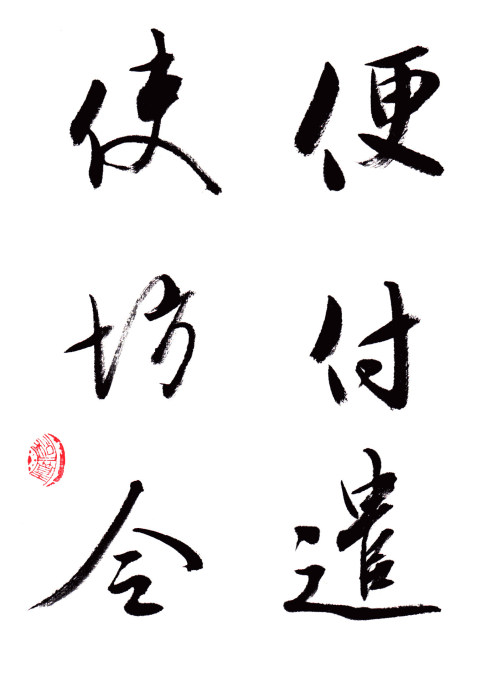 便付遣
使坊令